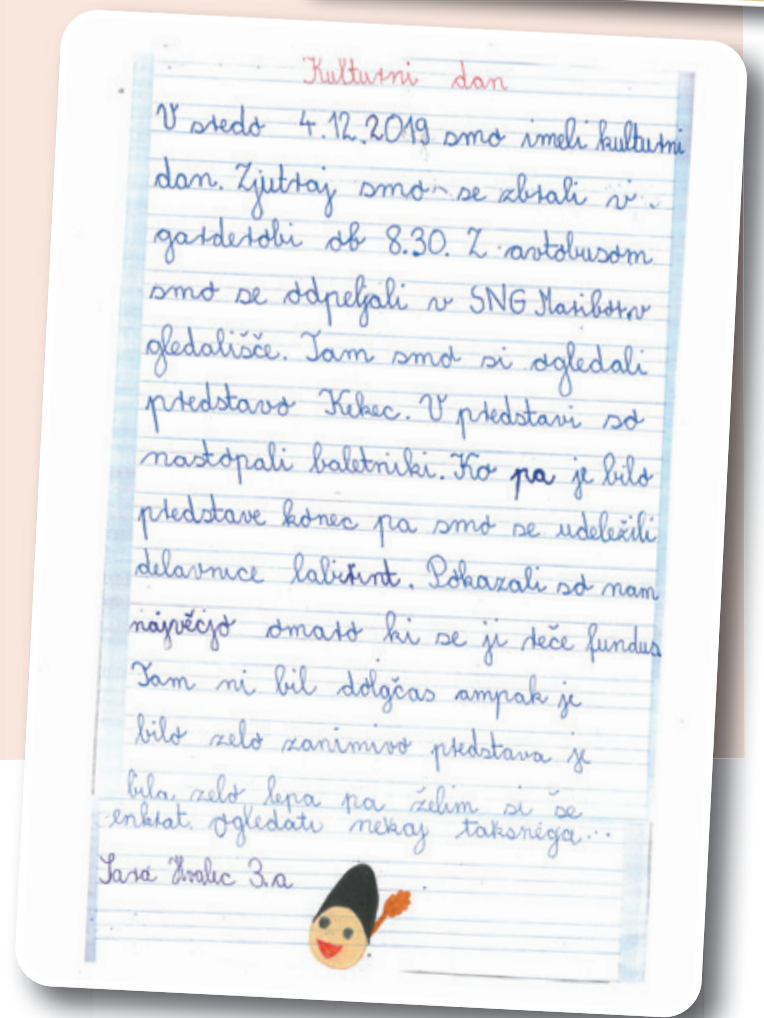 Kulturni dan
V sredo 4.12.2019 smo imeli kulturni
dan. Zjutraj smo se zbrali v
garderobi ob 8.30. Z avtobusom
smo se odpeljali v SNG Maribor v
gledališče. Tam smo si ogledali
predstavo Kekec. V predstavi so
nastopali baletniki. Ko pa je bilo
predstave konec pa smo se udeležili
delavnice labirint. Pokazali so nam
največjo omaro ki se ji reče fundus
Tam ni bil dolgčas ampak je
bilo zelo zanimivo predstava je
bila zelo lepa pa želim si še
enkrat ogledati nekaj taksnega...
Sara 3.a